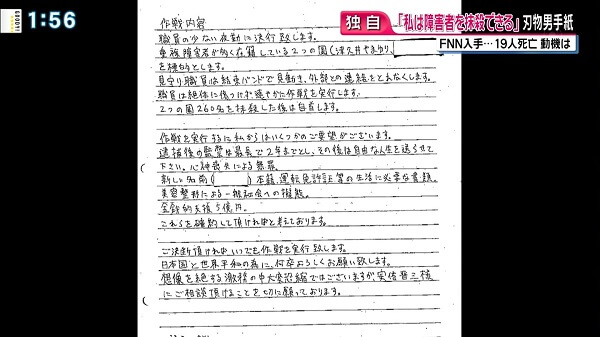 1:56
独自
「私は障害者を抹殺できる」刃物男手紙
FNN入手…19人死亡 動機は
作戦内容
職員の少ない夜勤に決行致します。
重複障害者が多く在籍している2つの園(津久井やまゆり、
を標的とします。
見守り職員は結束バンドで身動き、外部との連絡をとれなくします。
職員は絶体に傷つけず速やかに作戦を実行します。
2つの園260名を抹殺した後は自首します。
作戦を実行するに私からはいくつかのご要望がございます。
逮捕後の監禁は最長で2年までとし、その後は自由な人生を送らせて
下さい。心神喪失による無罪。
新しい名前( )本籍、運転免許証等の生活に必要な書類。
美容整形による一般社会への擬態。
金銭的支援5億円。
これらを確約して頂ければと考えております。
ご決断頂ければいつでも作戦を実行致します。
日本国と世界平和の為に、何卒よろしくお願い致します。
想像を絶する激務の中大変恐縮ではございますが、安倍晋三様
にご相談頂けることを切に願っております。